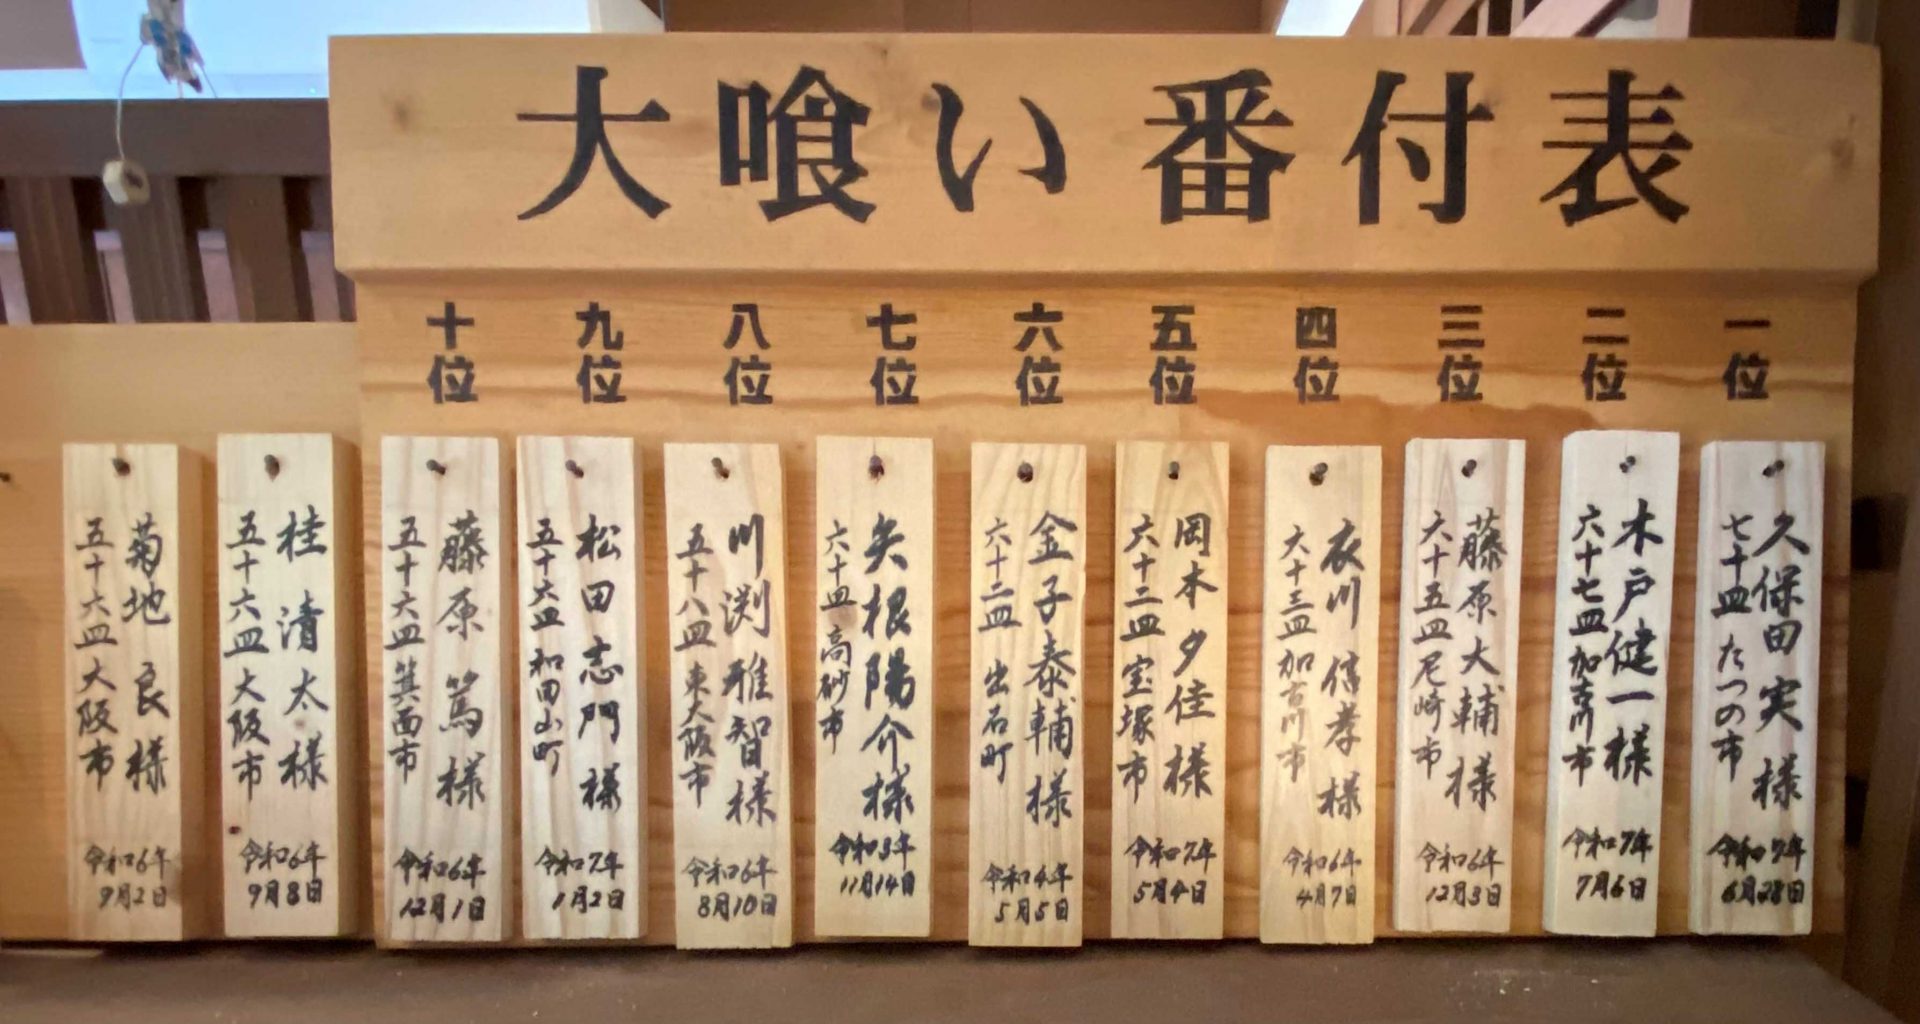 大喰い番付表
一位
久保田実様
七十皿 たつの市
令和7年
6月28日
二位
木戸健一様
六十七皿 加古川市
令和7年
7月6日
三位
藤原大輔様
六十五皿 尼崎市
令和6年
12月3日
四位
衣川信孝様
六十三皿 加古川市
令和6年
4月7日
五位
岡本夕佳様
六十二皿 宝塚市
令和7年
5月4日
六位
金子泰輔様
六十二皿 出石町
令和4年
5月5日
七位
矢根陽介様
六十皿 高砂市
令和3年
11月14日
八位
川渕雅智様
五十八皿 東大阪市
令和6年
8月10日
九位
松田志門様
五十六皿 和田山町
令和7年
1月2日
十位
藤原篤様
五十六皿 箕面市
令和6年
12月1日
桂清太様
五十六皿 大阪市
令和6年
9月8日
菊地良様
五十六皿 大阪市
令和6年
9月2日